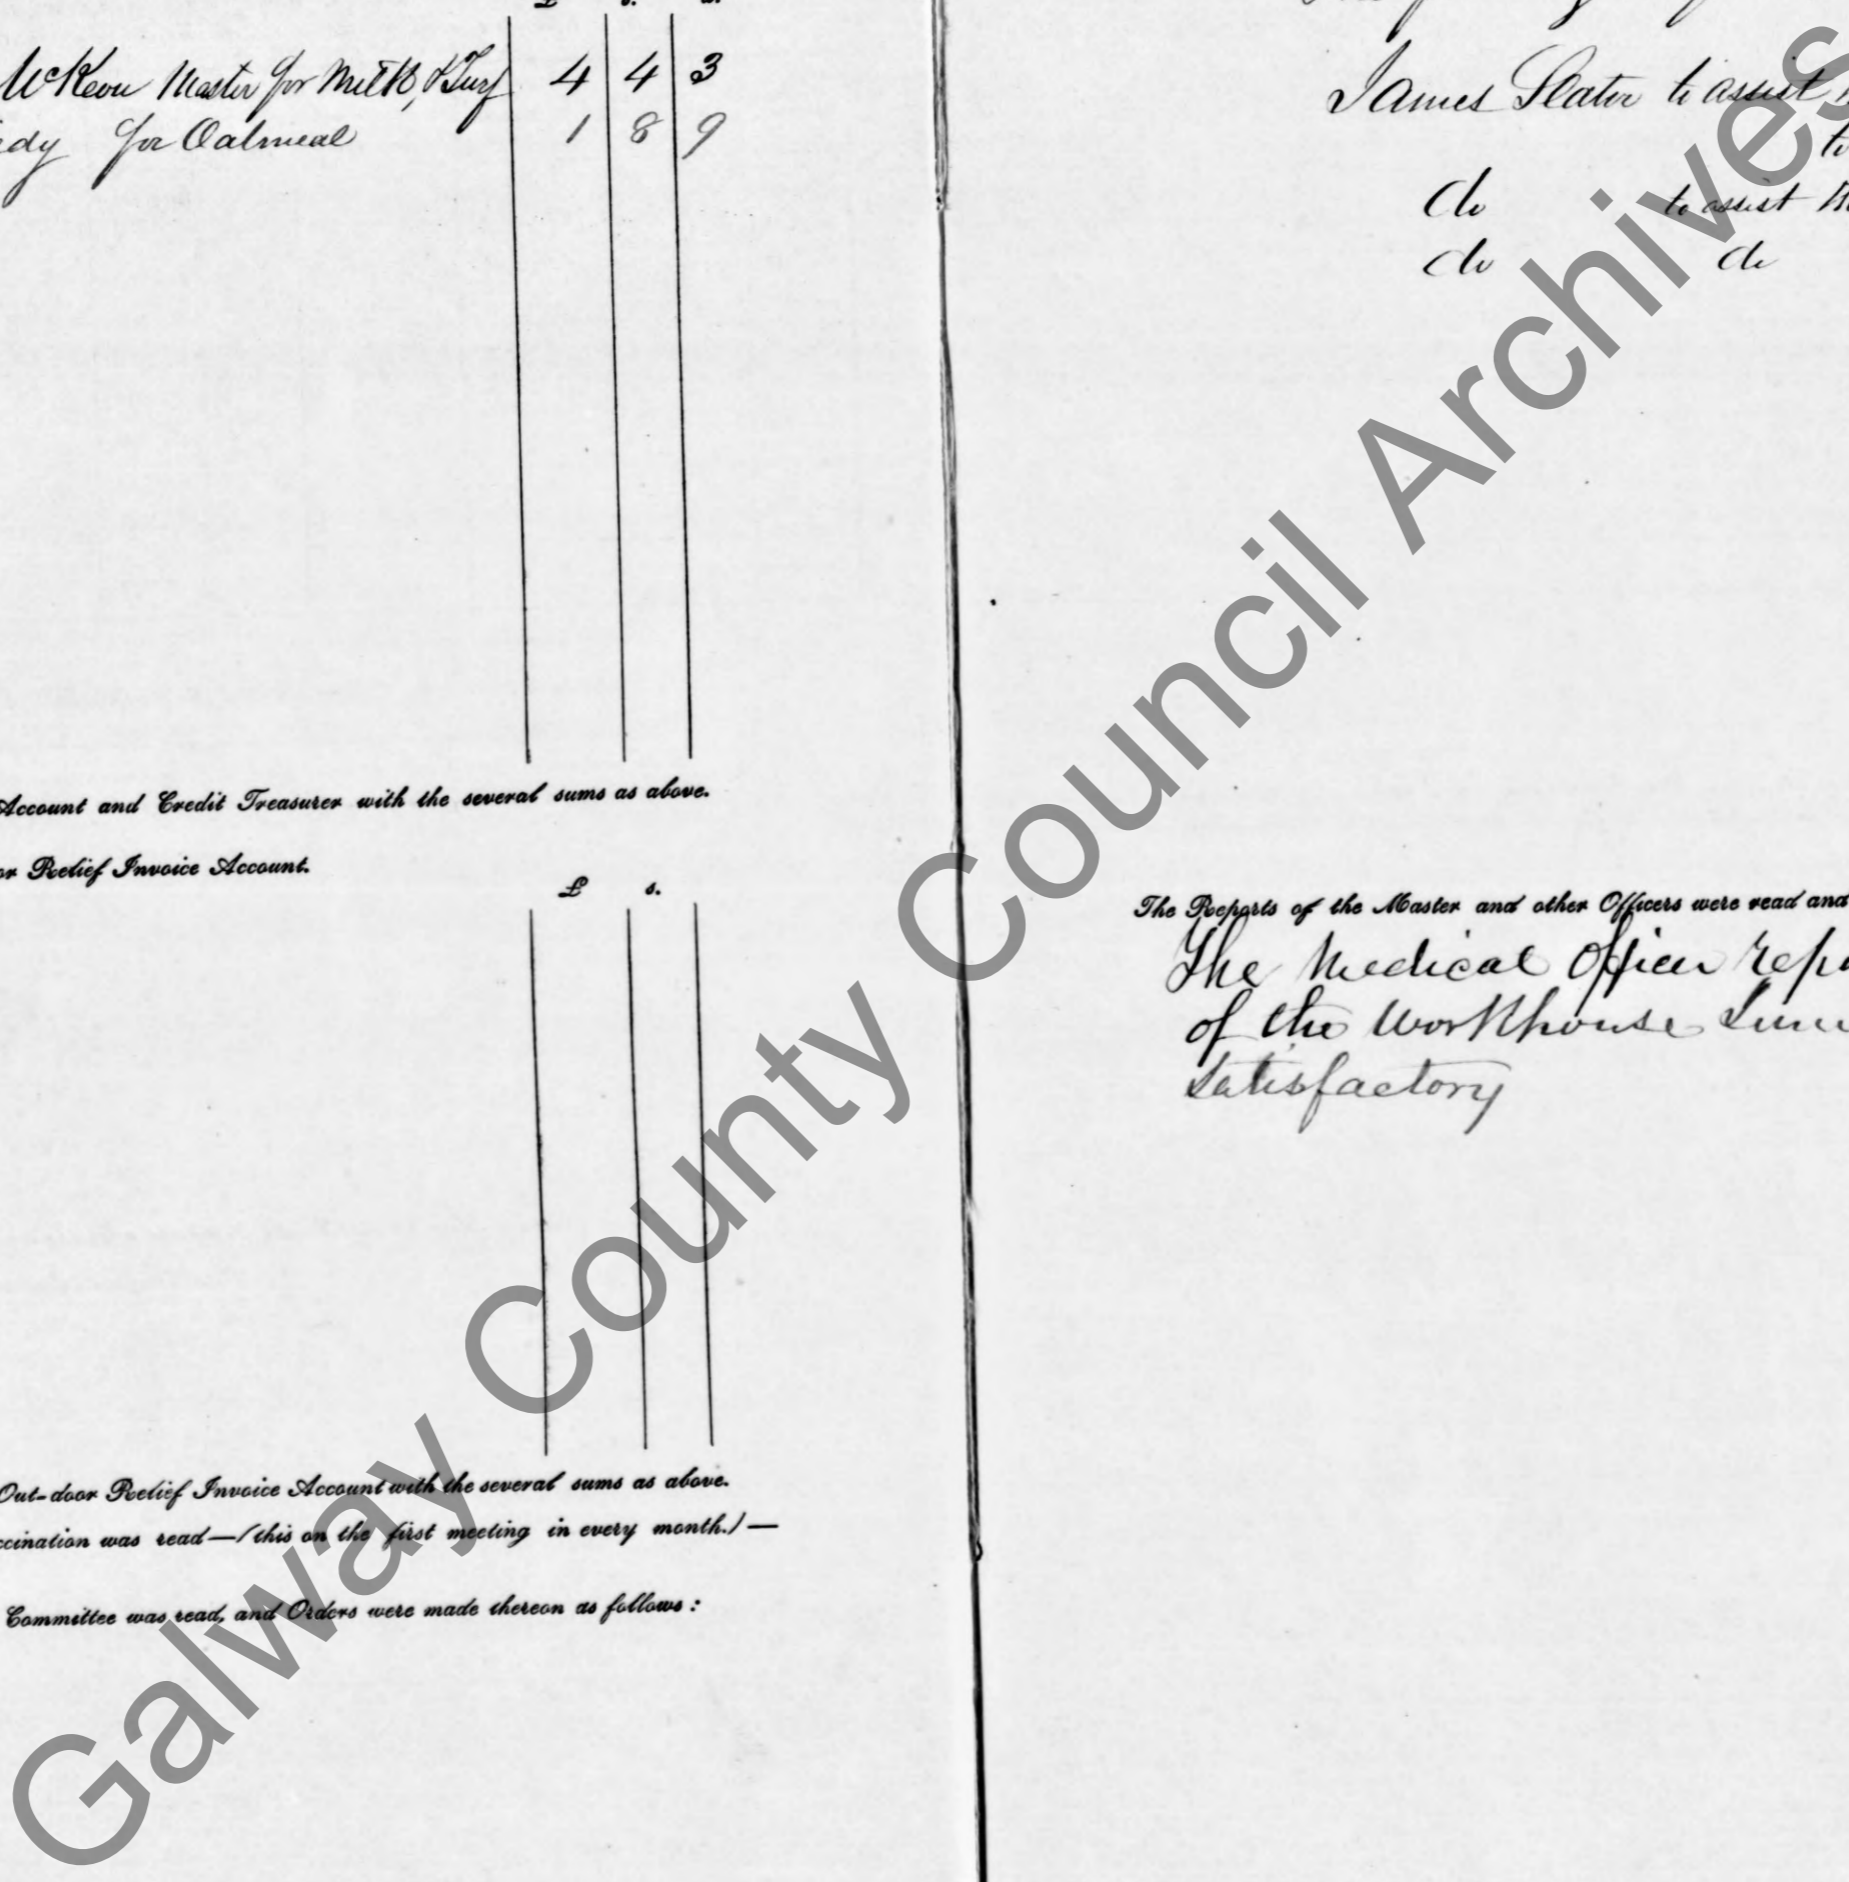 £ s. d.
McKeon Master for Milk, & Turf 4 4 3
for Oatmeal 1 8 9
Account and Credit Treasurer with the several sums as above.
Relief Invoice Account.
£ s.
Out-door Relief Invoice Account with the several sums as above.
was read—(this on the first meeting in every month.)—
Committee was read, and Orders were made thereon as follows:
James Slator to assist
to
do to assist
do do
The Reports of the Master and other Officers were read and
The Medical Officer
of the Workhouse
Satisfactory
Galway County Council Archives